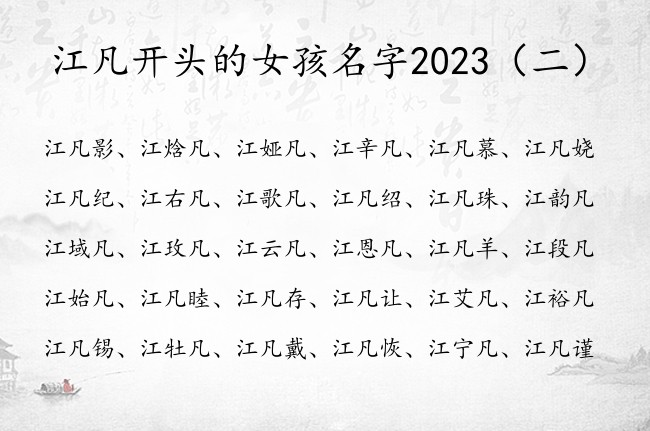 江凡开头的女孩名字2023（二）
江凡影、江焓凡、江娅凡、江辛凡、江凡慕、江凡娆
江凡纪、江右凡、江歌凡、江凡绍、江凡珠、江韵凡
江域凡、江玫凡、江云凡、江恩凡、江凡羊、江段凡
江始凡、江凡睦、江凡存、江凡让、江艾凡、江裕凡
江凡锡、江牡凡、江凡戴、江凡恢、江宁凡、江凡谨